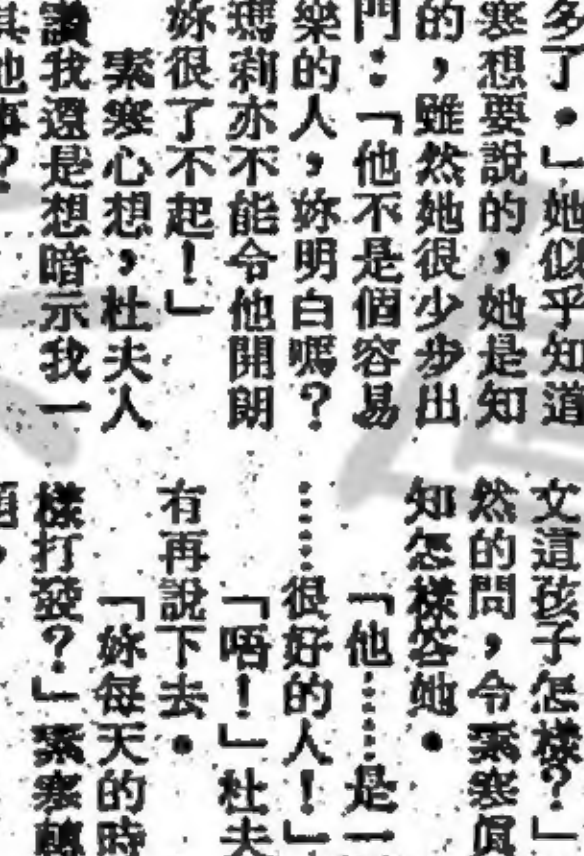 多了。」她似乎知道
寒想要說的，她是知
的，雖然她很少步出
門：「他不是個容易
樂的人，妳明白嗎？
瑪莉亦不能令他開朗
妳很了不起！」
素寒心想，杜夫人
讚我還是想暗示我一
其他事？
文這孩子怎樣？」
然的問，令素寒眞
知怎樣答她。
「他……是一
……很好的人！」
「唔！」杜夫
有再說下去。
「妳每天的時
樣打發？」素寒轉